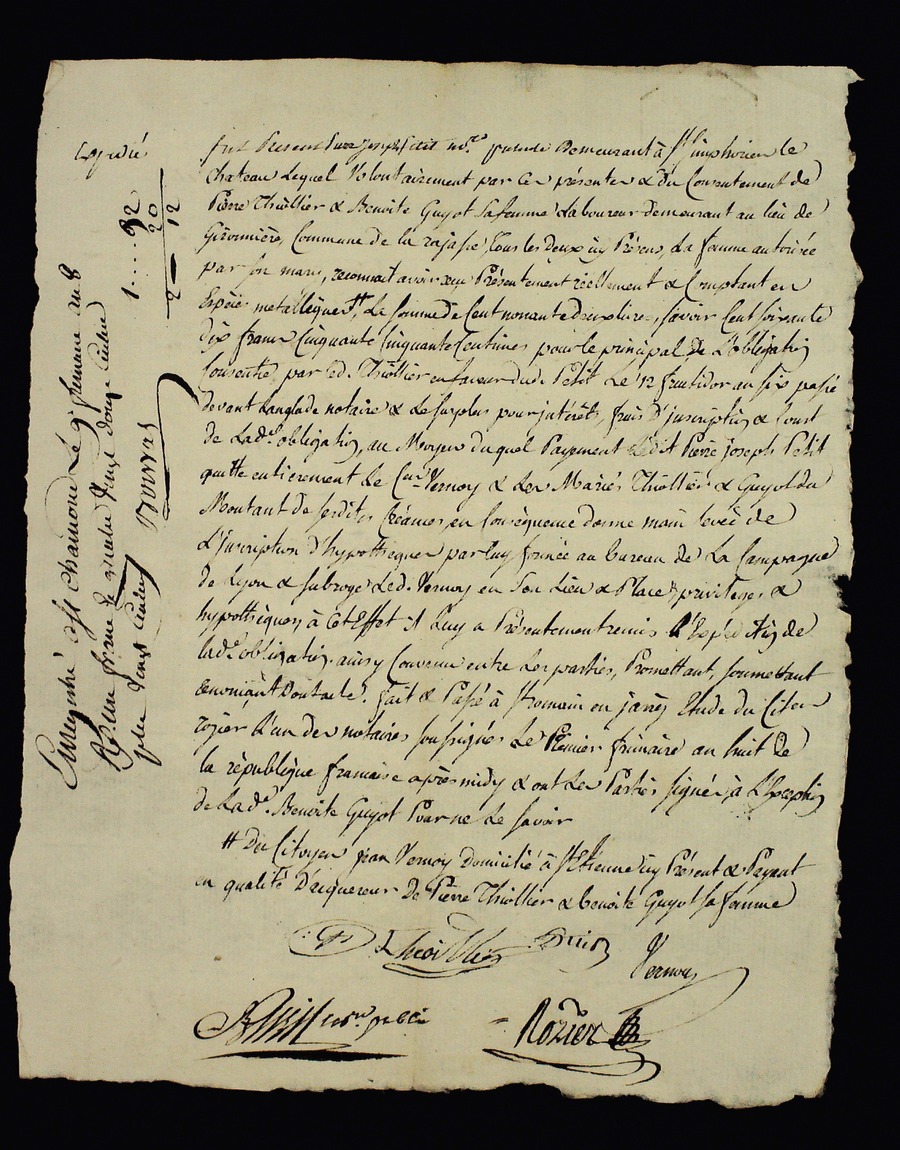 expédié
1 .... 92
20
12
2
fut Present Pierre joseph Petit demeurant à St simphorien le
Chateau Lequel Volontairement par Ces présentes & du Consentement de
Pierre Thiollier & Benoite Guyot Sa femme Laboureur demeurant au lieu de
Gironnière, Commune de la rajasse, tous les deux icy Présens, La femme autorisée
par son mary, reconnait avoir reçu Présentement réellement & Comptant en
Espèces metalleques # La Somme de Cent nonante deux livres, Savoir Cent Soixante
dix francs Cinquante Cinquante Centimes pour le principal de L'obligation
Consentie par led. Thiollier en faveur dud. Petit Le 12 fructidor an Six passé
devant Langlade notaire & Le Surplus pour intérêts, frais D'inscription & Coust
de Lade. obligation, au Moyen du quel Payement Ledit Pierre Joseph Petit
quitte entierement le Cen. Vernoy & Les Mariés Thiollier & Guyot du
Montant de Sesdites Créances, en Conséquence donne main levée de
L'inscription d'hypothèques par luy formée au bureau de La Campagne
de Lyon & Subroge Led. Vernoy en Son Lieu & Place, privileges &
hypothèques, à Cet Effet il Luy a Présentement remis L'Expédition de
lade. obligation, ainsy Convenu entre Les parties, Promettant, Soumettant
Renonçant. Fait & Passé à St romain en jarèz Etude du Citoen
rozier L'un des notaires Soussignés Le Premier frimaire an huit de
la république francaise après midy & ont Les Parties Signé, à L'Exception
de Lade. Benoite Guyot Pour ne Le Savoir
# Du Citoyen jean Vernoy Domicilié à St Etienne icy Présent & Payant
en qualité D'acquereur de Pierre Thiollier & benoite Guyot Sa femme
Thiollier
Petit
Vernoy
Rozier
Enregistré à St chamond Le 9 frimaire an 8
Rç un franc